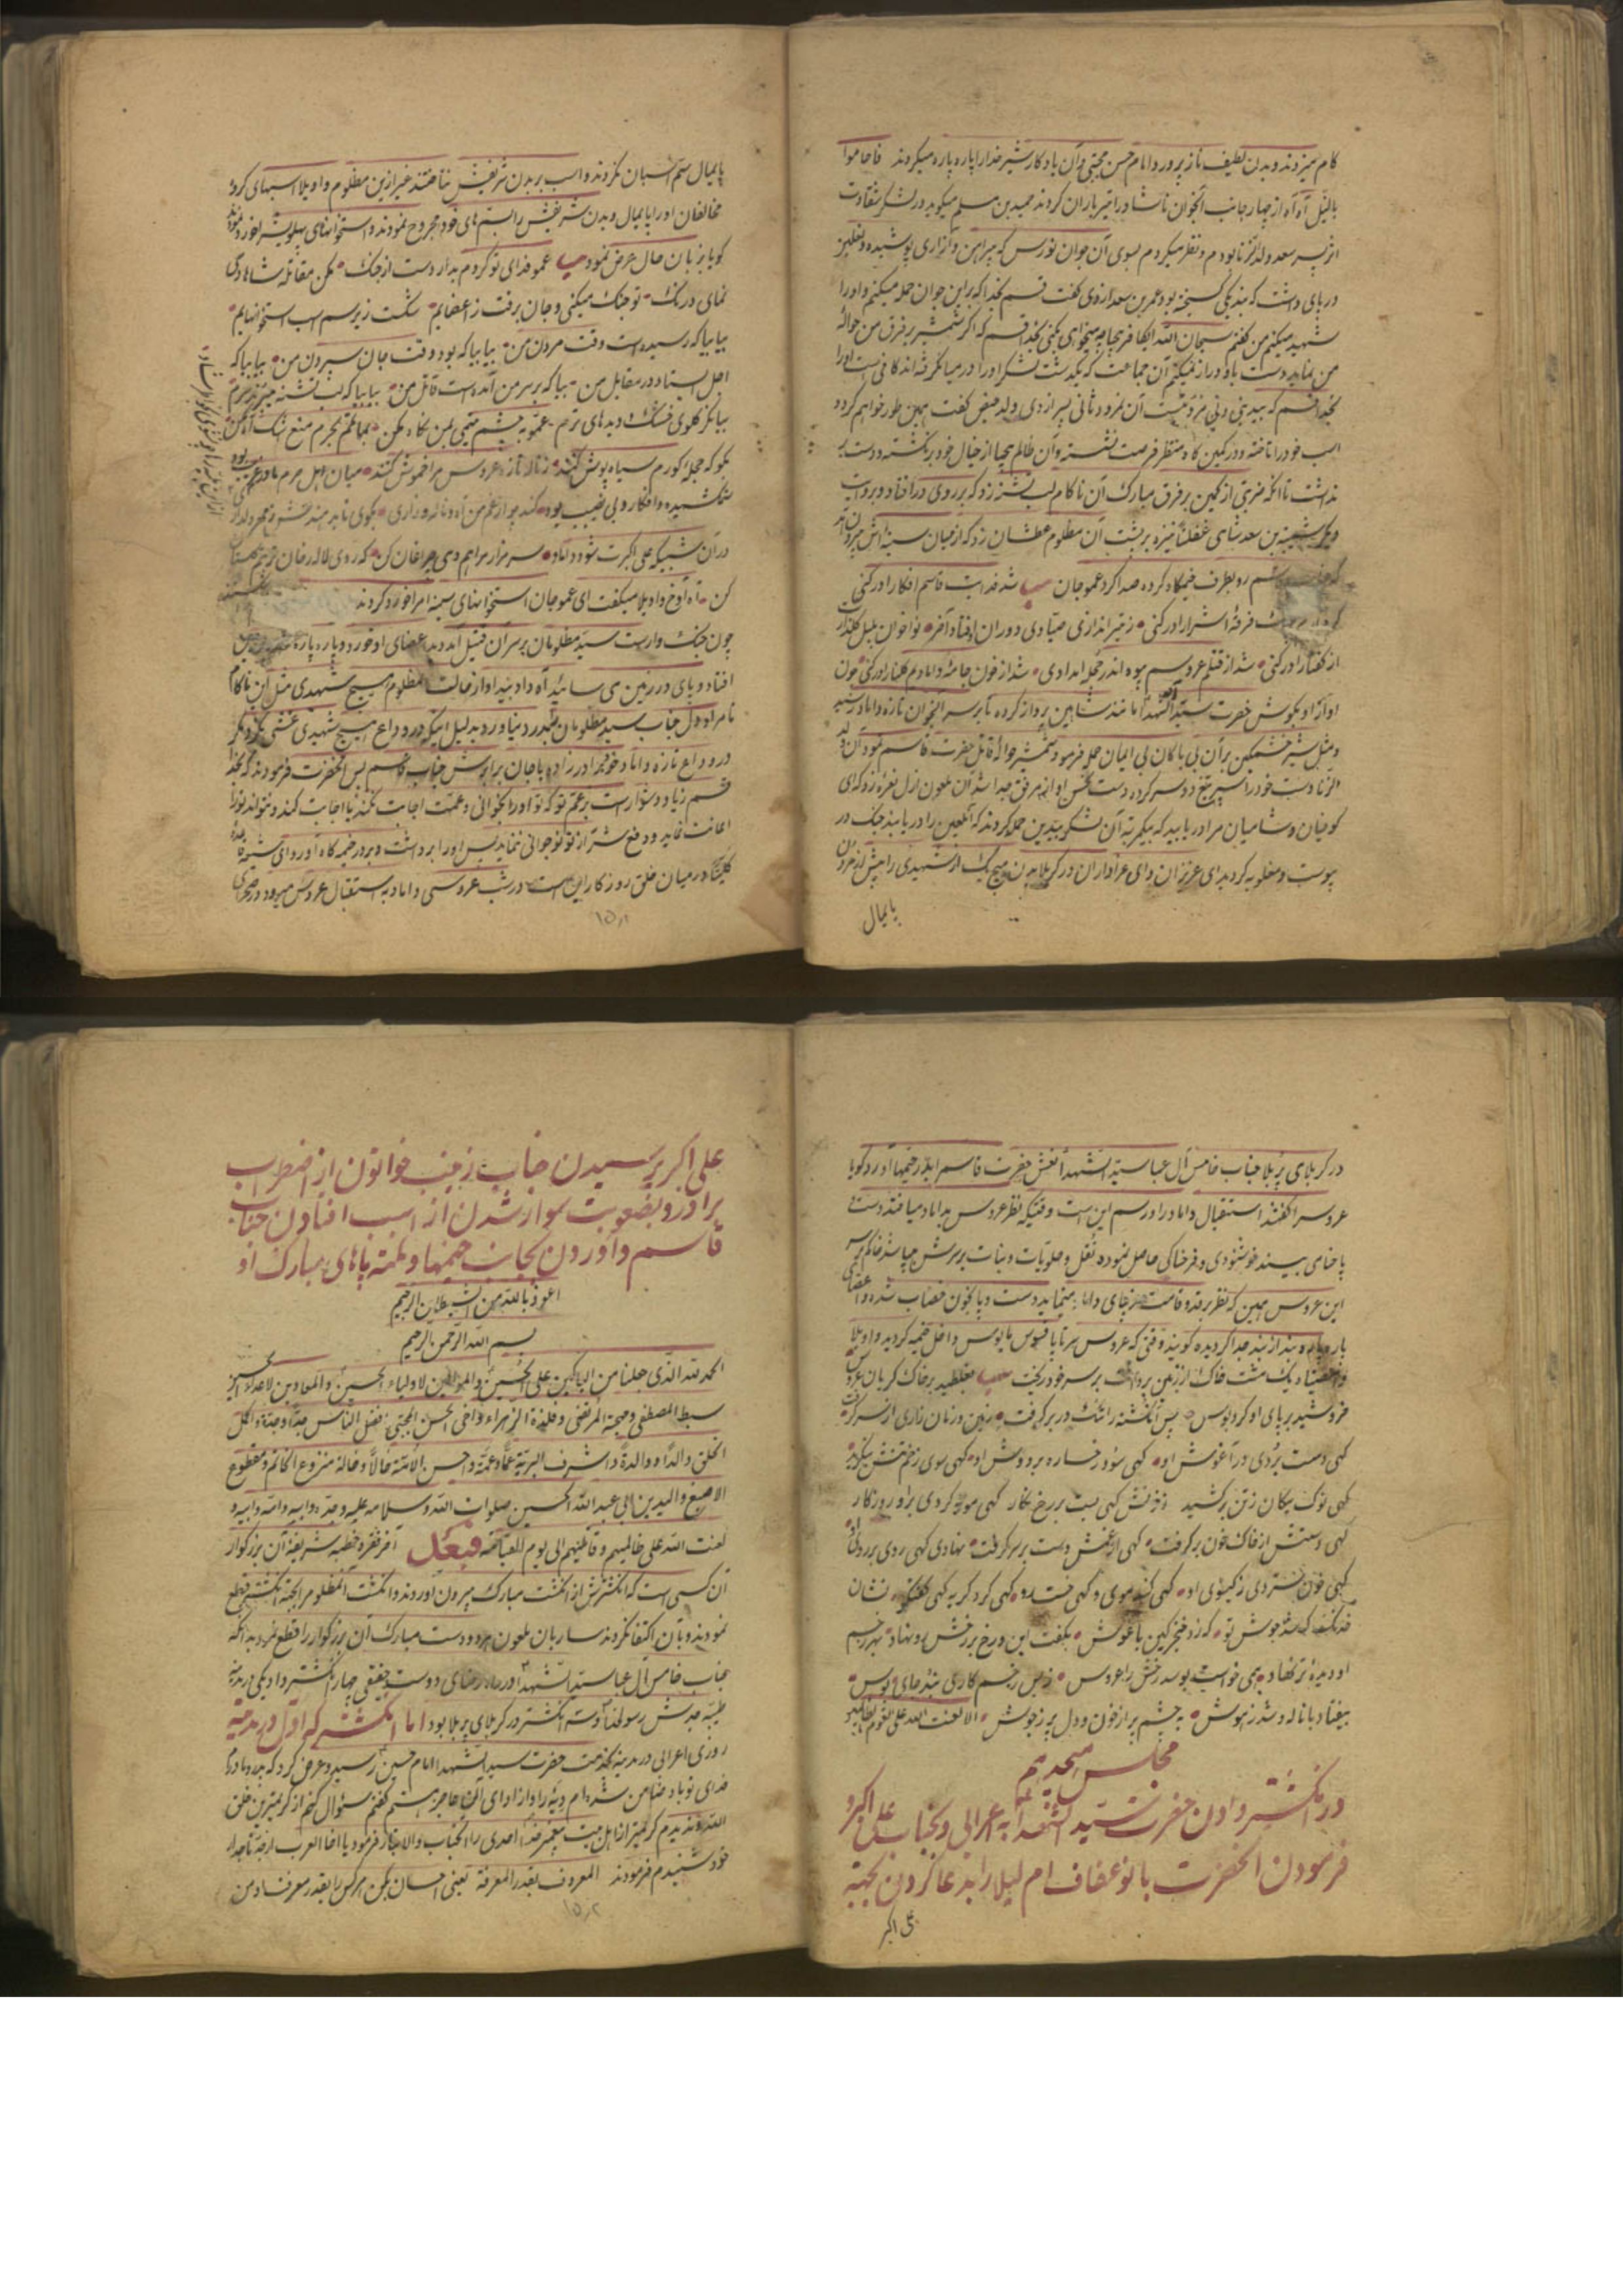 کام میزدند و بدن لطیف ناز پرورد امام حسن مجتبی و آن یادکار شیر خدا را پاره پاره میکردند فاحاطوا
بالنبل آه آه از چهار جانب آنجوان ناشاد را تیر باران کردند حمید بن مسلم میکوید در لشکر شقاوت
اثر پسر سعد ولد الزنا بودم و نظر میکردم بسوی آن جوان نورس که پیراهن و ازاری پوشیده و نعلین
در پای داشت که بند یکی کسیخته بود عمر بن سعد ازدی کفت قسم بخدا که بر این جوان حمله میکنم و او را
شهید میکنم من کفتم سبحان الله ایکافر بیحیا چه میخواهی بکنی بخدا قسم که اکر شمشیر بر فرق من حواله
من نماید دست باو دراز نمیکنم آن جماعت که یکدشت لشکر او را در میان کرفته‌اند کافی است او را
بخدا قسم که ببینی آن نمرود ثانی پسر ازدی ولد حیض کفت بهمین طور خواهم کرد و
اسب خود را تاخته و در کمین کاه منتظر فرصت نشسته و آن ظالم بیحیا از خیال خود برنکشته و دست بر
نداشت تا آنکه ضربتی از کمین بر فرق مبارک آن ناکام لب تشنه زد که بر روی در افتاد و بروایت
دیکر شیبة بن سعد شامی غفلتاً نیزه بر پشت آن مظلوم عطشان زد که از میان سینه‌اش بیرون آمد
رو بطرف خیمکاه کرده صدا کرد عمو جان شد فدایت قاسم افکار ادرکنی
فرقهٔ اشرار ادرکنی ز تیر اندازی صیادی دوران افتاد آخر نوا خوان بلبل کلزار
از کفتار ادرکنی شد از قتلم عروسم بیوه اندر حجله ای شد از خون جامهٔ دامادیم کلنار ادرکنی چون
آواز او بکوش حضرت سید الشهدا آمد مانند شاهین پرواز کرده تا بر سر آنجوان تازه داماد رسید
و مثل شیر خشمکین بر آن بی باکان بی ایمان حمله فرمود و شمشیر حوالهٔ قاتل حضرت قاسم نمود آن ولد
الزنا دست خود را سپر تیغ دو سر کرده دست نحس او از مرفق جدا شد آن ملعون ازل نعره زد که ای
کوفیان و شامیان مرا دریابید که بیکمرتبه آن لشکر بیدین حمله کردند که آنلعین را دریابند جنک در
پیوست و مغلوبه کردید ای عزیزان و ای عزاداران در کربلا بدن هیچ یک از شهیدی را پیش از مردن
پایمال
پایمال سم اسبان نکردند و اسب بر بدن شریفش نتاختند غیر از این مظلوم واویلا اسبهای کروه
مخالفان او را پایمال و بدن شریفش را بسمهای خود مجروح نمودند و استخوانهای پهلویش را خورد نمودند
کویا بزبان حال عرض نمود عمو فدای تو کردم بدار دست از جنک مکن مقاتله شاها دمی
نمای درنک تو جنک میکنی و جان برفت ز اعضایم شکست زیر سم اسب استخوانهایم
بیا بیا که رسیده است وقت مردن من بیا بیا که بود وقت جان سپردن من بیا بیا که
اجل ایستاد در مقابل من بیا که بر سر من آمده است قاتل من بیا بیا که لب تشنه
بیا نکر کلوی خشک و دیدهای ترم عمو بچشم یتیمی بمن نکاه مکن
بکو که حجله کورم سیاه پوش کنند ز ناله تازه عروس مرا خموش کنند میان اهل حرم مادر غریب
ستمکشیده و افکار و بی نصیب بود کند چو از غم من آه و ناله و زاری بکوی
در آن علی اکبرت شود داماد سر مزار مرا هم دمی چراغان کن
کن آه آوخ واویلا میکفت ای عمو جان استخوانهای سینه‌ام را خورد کردند
چون جنک وارست سید مظلومان بر سر آن قتیل آمد دید اعضای او خورد و پاره پاره
افتاد و پای در زمین می ساید آه داد بیداد از حالت آنمظلوم هیچ شهیدی مثل این ناکام
نامراد دل جناب سید مظلومان بدرد نیاورد بدلیل اینکه در وداع هیچ شهیدی غشی نکرد مکر
در وداع تازه داماد خونخواه برادر زاده با جان برابرش جناب قاسم پس آنحضرت فرمودند که بخدا
قسم زیاد دشوار است بر عم تو که تو او را بخوانی و عمت اجابت نکند یا اجابت کند و نتواند تو را
اعانت نماید و دفع شر از تو نوجوانی نماید پس او را برداشت و بدر خیمه کاه آورد ای شیعیان قاعدهٔ
کلیتاً در میان خلق روزکار این است در شب عروسی داماد باستقبال عروس میرود در صحرای
۱۵۱
در کربلای پر بلا جناب خامس آل عبا سید الشهدا نعش حضرت قاسم را بدر خیمها آورد کویا
عروس را کفتند استقبال داماد را و رسم این است وقتیکه نظر عروس بداماد میافتد دست و
پا حنای می بیند خوشنودی و فرخناکی حاصل نموده نقل و حلویات و نبات بر سرش می پاشد خاکم بر سر
این عروس همین که نظر بر قد و قامت داماد مینماید دست و پا بخون خضاب شده و اعضای
پاره پاره و بند از بند جدا کردیده کویند وقتی که عروس سر تا پا افسوس مایوس داخل خیمه کردید واویلا
وا مصیبتاه یک مشت خاک از زمین برداشت بر سر خود ریخت بغلطید بر خاک کریان عروس
خروشید بر پای او کرد بوس پس آنکشته را تنک در بر کرفت زمین و زمان زاری از سر کرفت
کهی دست بردی در آغوش او کهی سود رخساره بر دوش او کهی سوی زخم تنش بنکرید
کهی نوک پیکان ز تن برکشید ز خونش کهی بست بر رخ نکار کهی مویه کردی بر او روزکار
کهی دستش از خاک و خون برکرفت کهی از غمش دست بر سر کرفت نهادی کهی روی بر روی او
کهی خون ستردی ز کیسوی او کهی کند موی و کهی خست رو کهی کرد کریه کهی کفتکو
که زد خنجر کین باغوش بکفت این و رخ بر رخش رو نهاد بهر زخم
او دیدهٔ تر نهاد همی خواست بوسد رخش را عروس ز بس زخم کاری نبد جای بوس
بیفتاد با ناله و شد ز هوش بچشم پر از خون و دل پر ز جوش الا لعنت الله علی القوم الظالمین
مجلس هیجدهم
در انکشتر دادن حضرت سید الشهدا به اعرابی و بجناب علی اکبر و
فرمودن آنحضرت بانو عفاف ام لیلا را بدعا کردن بجهة
علی اکبر
علی اکبر پرسیدن جناب زینب خواتون از اضطراب
برادر و بصعوبت سوار شدن از اسب افتادن جناب
قاسم و آوردن بجانب خیمها و پاهای مبارک او
اعوذ بالله من الشیطان الرجیم
بسم الله الرحمن الرحیم
الحمد لله الذی جعلنا من الباکین علی الحسین و الموالین لاولیاء الحسین و المعادین لاعداء الحسین
سبط المصطفی و مهجة المرتضی و فلذة الزهراء و اخی الحسن المجتبی افضل الناس جداً و جدة و اکمل
الخلق والداً و والدة و اشرف البریة عماً و عمة و احسن الائمة خالاً و خالة منزوع الخاتم و مقطوع
الاصبع و الیدین ابی عبد الله الحسین صلوات الله و سلامه علیه و جده و ابیه و امه و اخیه و
لعنت الله علی ظالمیهم و قاتلیهم الی یوم القیامة فبعد آخر فقره خطبه شریفه آن بزرکوار
آن کسی است که انکشترش از انکشت مبارک بیرون آوردند و انکشت آنمظلوم را بجهة انکشتر قطع
نمودند و بآن اکتفا نکردند ساربان ملعون هر دو دست مبارک آن بزرکوار را قطع نمود بدانکه
جناب خامس آل عبا سید الشهدا در راه رضای دوست حقیقی چهار انکشتر داد یکی در مدینه
طیبه جدش رسولخدا و سه انکشتر در کربلای پر بلا بود اما انکشتر که اول در مدینه
روزی اعرابی در مدینه بخدمت حضرت سید الشهدا امام حسین رسید و عرض کرد که پدر و مادرم
فدای تو باد ضامن شده‌ام دیه را و از ادای آن عاجز هستم کفتم سؤال کنم از کریمترین خلق
الله و ندیدم کریمتر از اهل بیت پیغمبر خدا احدی را آنجناب والاتبار فرمود یا اخا العرب از جد تاجدار
خود شنیدم فرمودند المعروف بقدر المعرفة یعنی احسان بکن هر کس را بقدر معرفت او من
۱۵۲